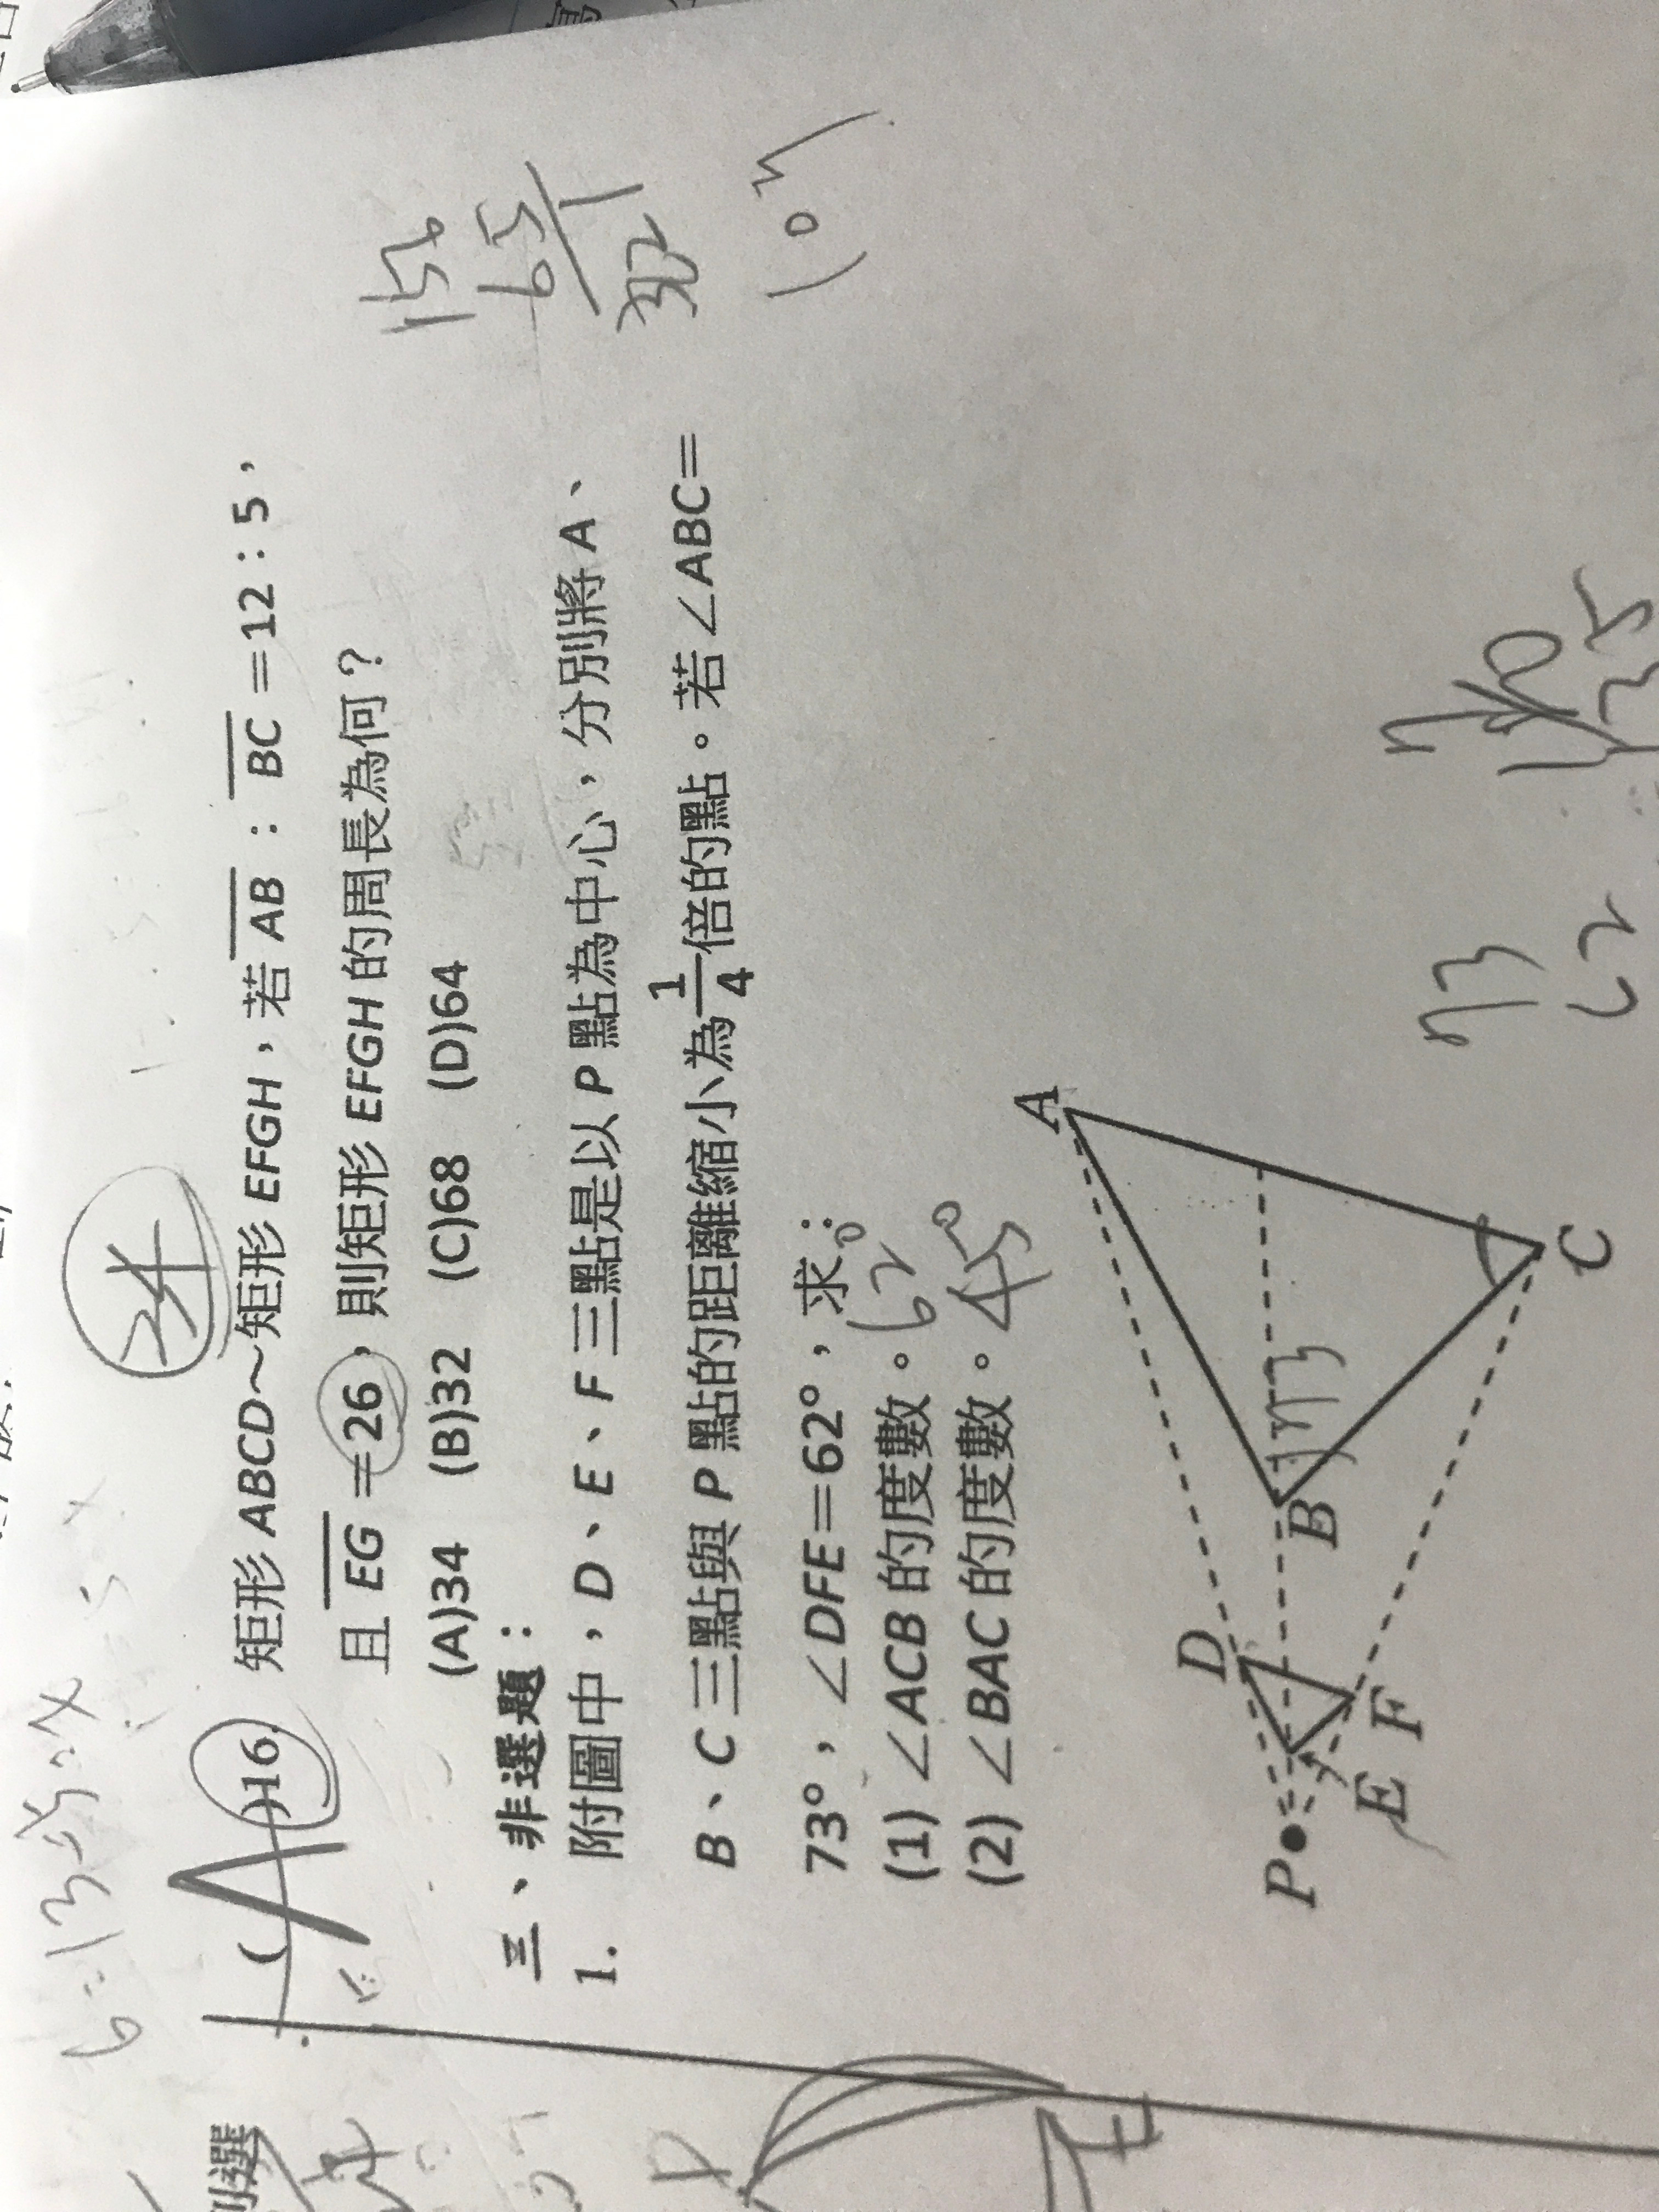 24
( A )16. 矩形 ABCD～矩形 EFGH，若 AB：BC＝12：5，
且 EG＝26，則矩形 EFGH 的周長為何？
(A)34 (B)32 (C)68 (D)64
三、非選題：
1. 附圖中，D、E、F 三點是以 P 點為中心，分別將 A、
B、C 三點與 P 點的距離縮小為1/4倍的點。若∠ABC＝
73°，∠DFE＝62°，求：
(1) ∠ACB 的度數。 62°
(2) ∠BAC 的度數。 45°
A
D
P
B
73
E
F
C
156
65
73
62
180
135